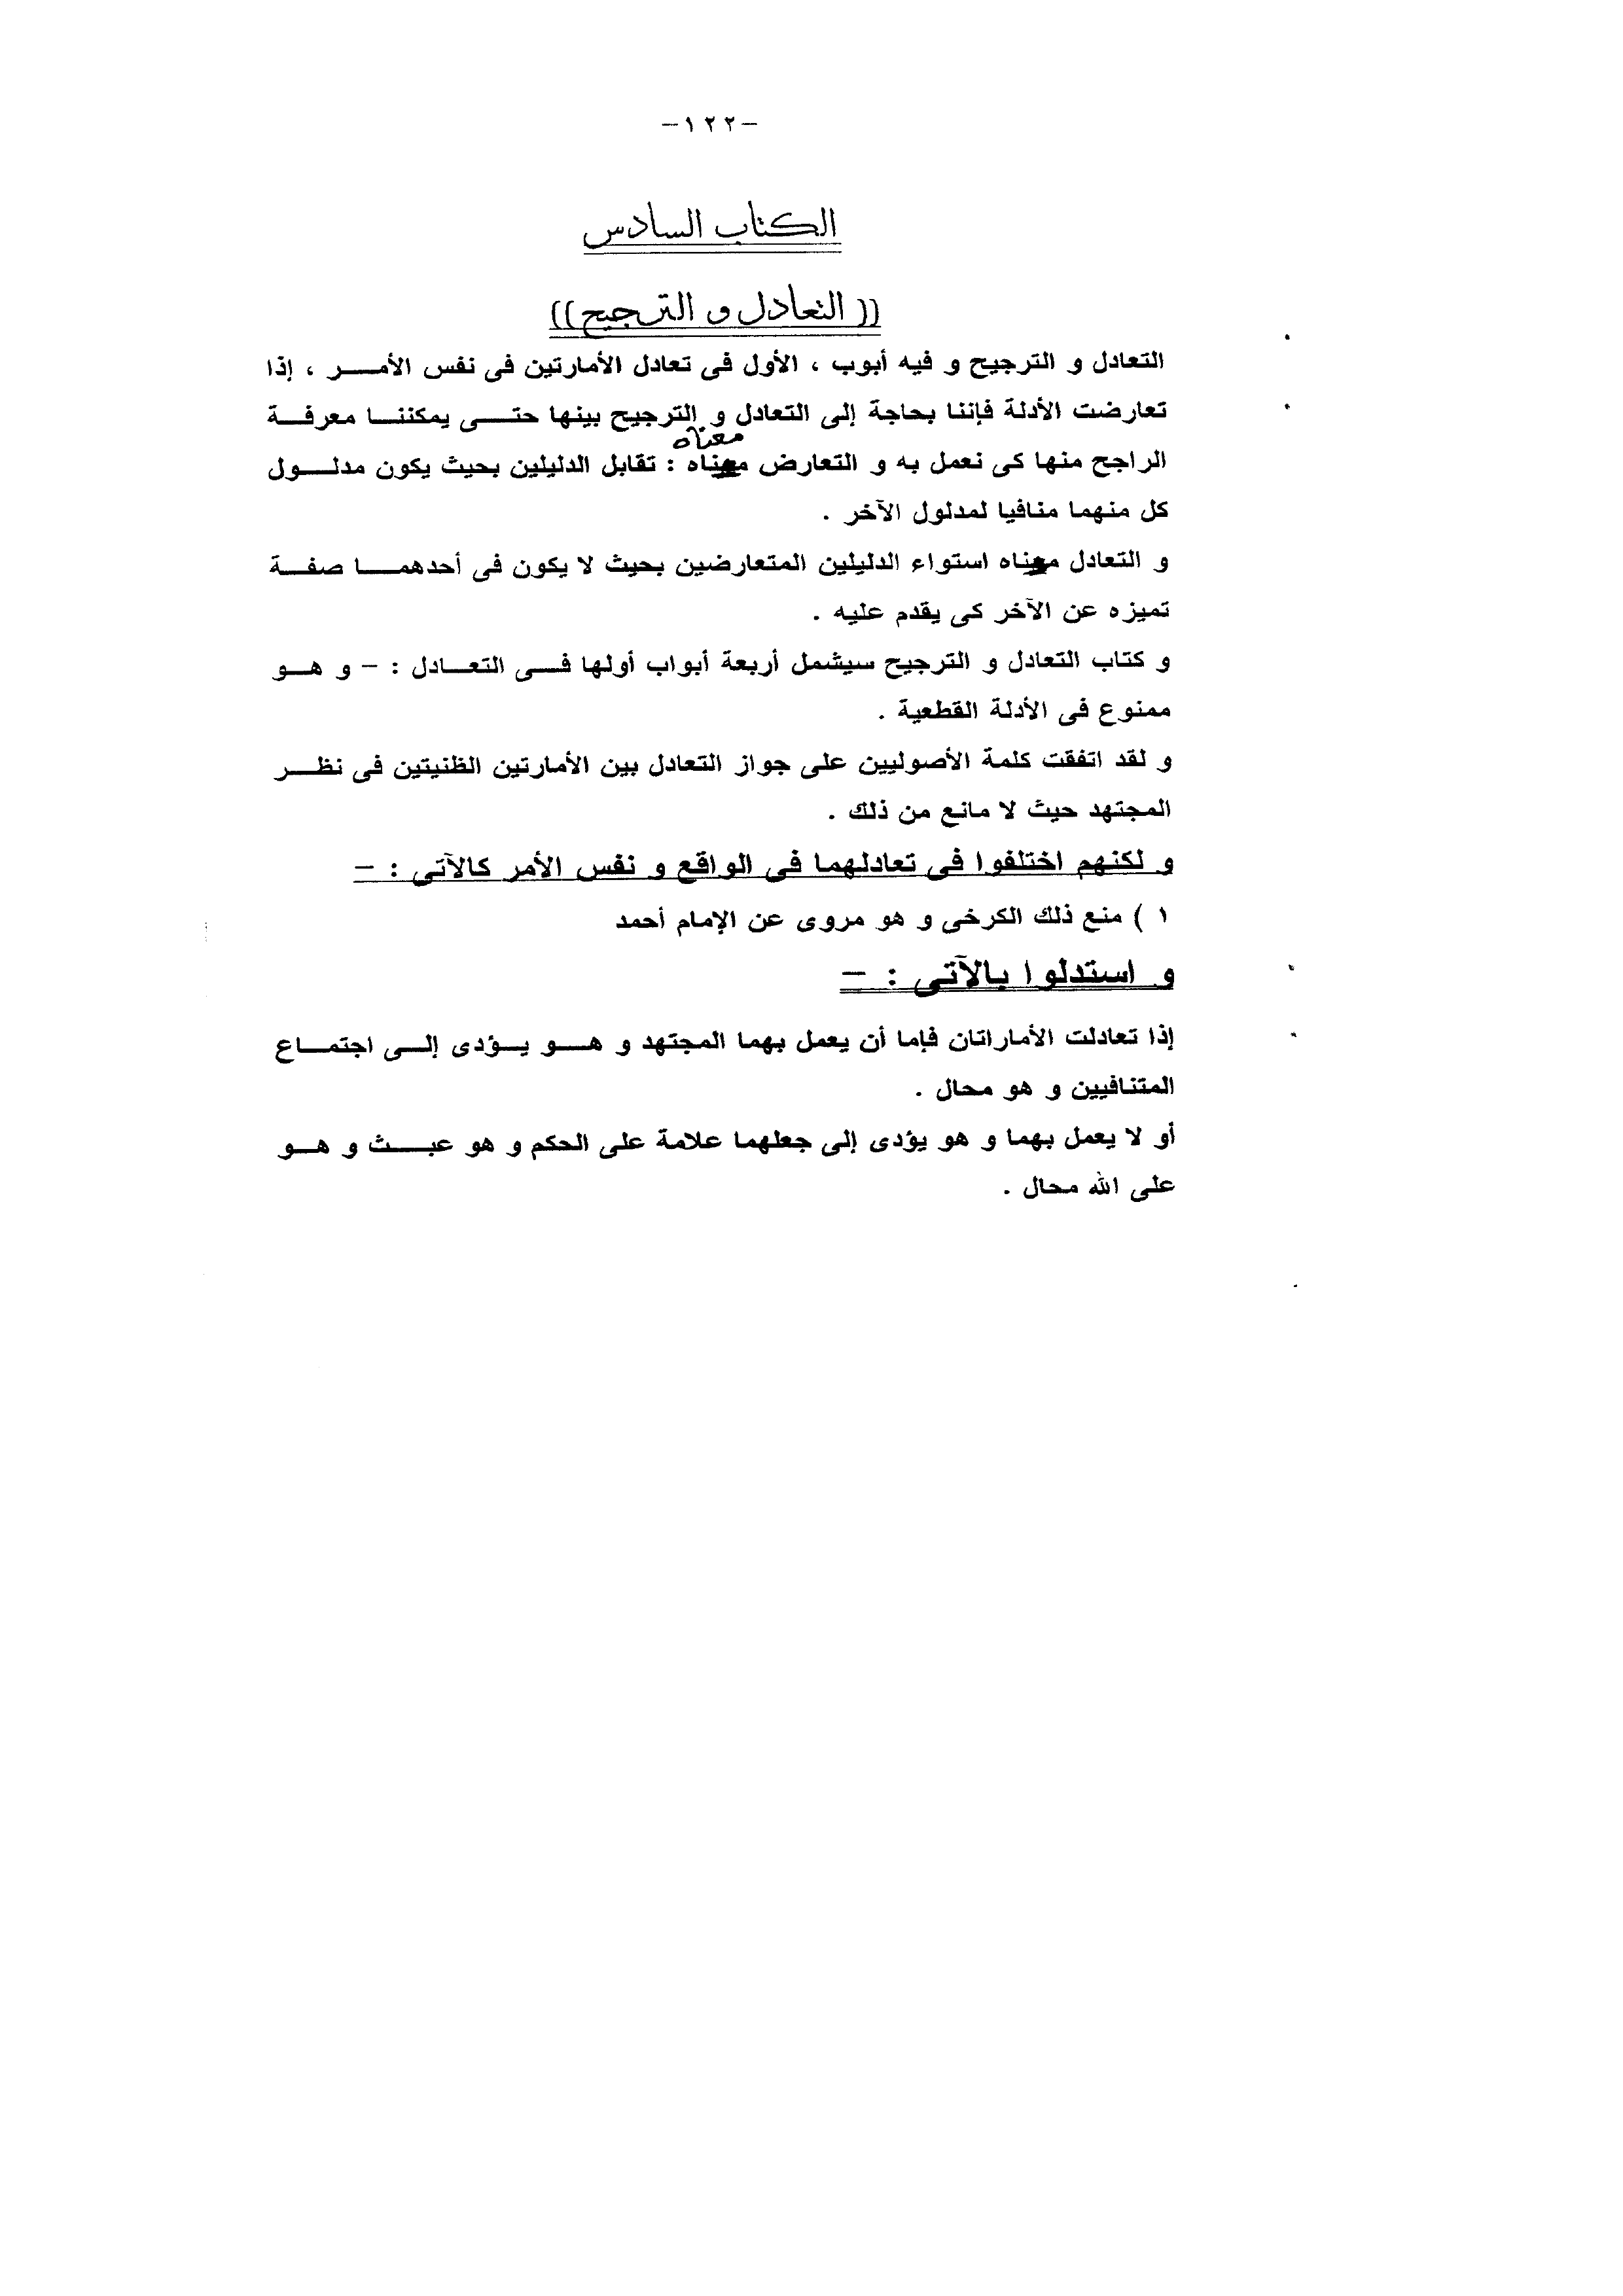 -١٢٢-
الكتاب السادس
(( التعادل و الترجيح ))
التعادل و الترجيح و فيه أبوب ، الأول فى تعادل الأمارتين فى نفس الأمر ، إذا
تعارضت الأدلة فإننا بحاجة إلى التعادل و الترجيح بينها حتى يمكننا معرفة
معناه
الراجح منها كى نعمل به و التعارض معناه : تقابل الدليلين بحيث يكون مدلول
كل منهما منافيا لمدلول الآخر .
و التعادل معناه استواء الدليلين المتعارضين بحيث لا يكون فى أحدهما صفة
تميزه عن الآخر كى يقدم عليه .
و كتاب التعادل و الترجيح سيشمل أربعة أبواب أولها فى التعادل : - و هو
ممنوع فى الأدلة القطعية .
و لقد اتفقت كلمة الأصوليين على جواز التعادل بين الأمارتين الظنيتين فى نظر
المجتهد حيث لا مانع من ذلك .
و لكنهم اختلفوا فى تعادلهما فى الواقع و نفس الأمر كالآتى : -
١ ) منع ذلك الكرخى و هو مروى عن الإمام أحمد
و استدلوا بالآتى : -
إذا تعادلت الأماراتان فإما أن يعمل بهما المجتهد و هو يؤدى إلى اجتماع
المتنافيين و هو محال .
أو لا يعمل بهما و هو يؤدى إلى جعلهما علامة على الحكم و هو عبث و هو
على الله محال .